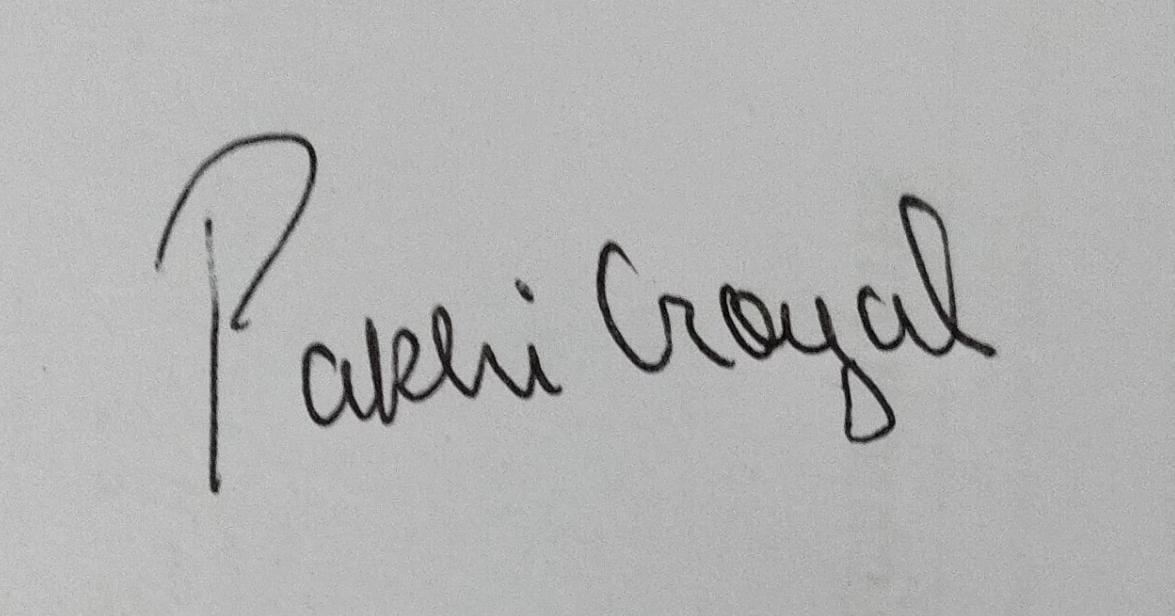 Pakhi Goyal